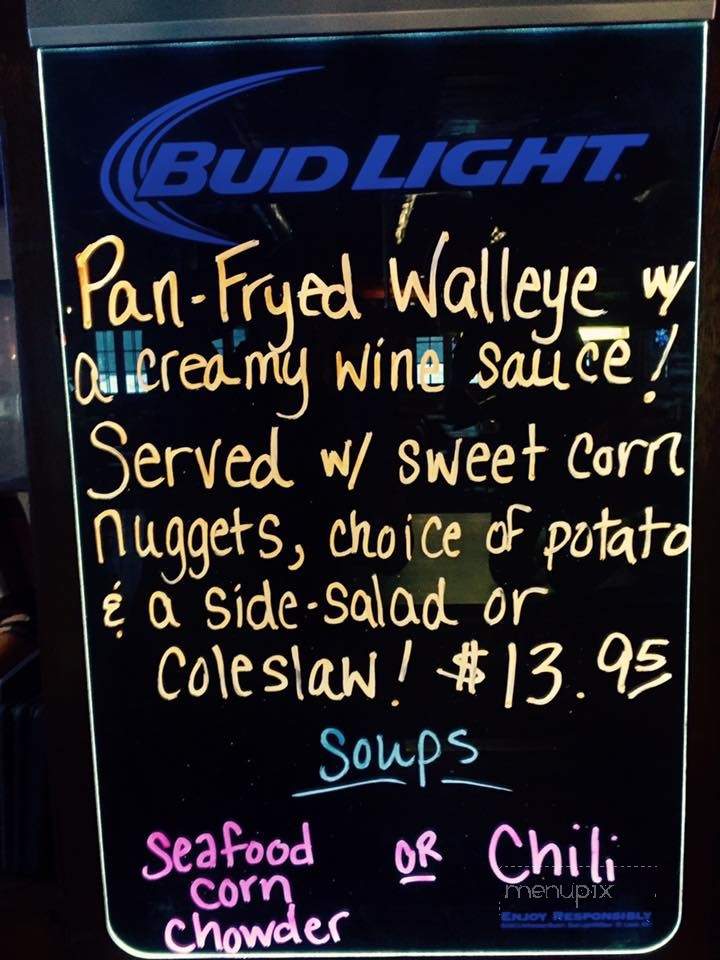 BUD LIGHT
Pan-Fryed Walleye w/
a creamy wine sauce!
Served w/ sweet corn
nuggets, choice of potato
& a side-salad or
Coleslaw! $13.95
Soups
Seafood OR Chili
corn
chowder
menupix
ENJOY RESPONSIBLY